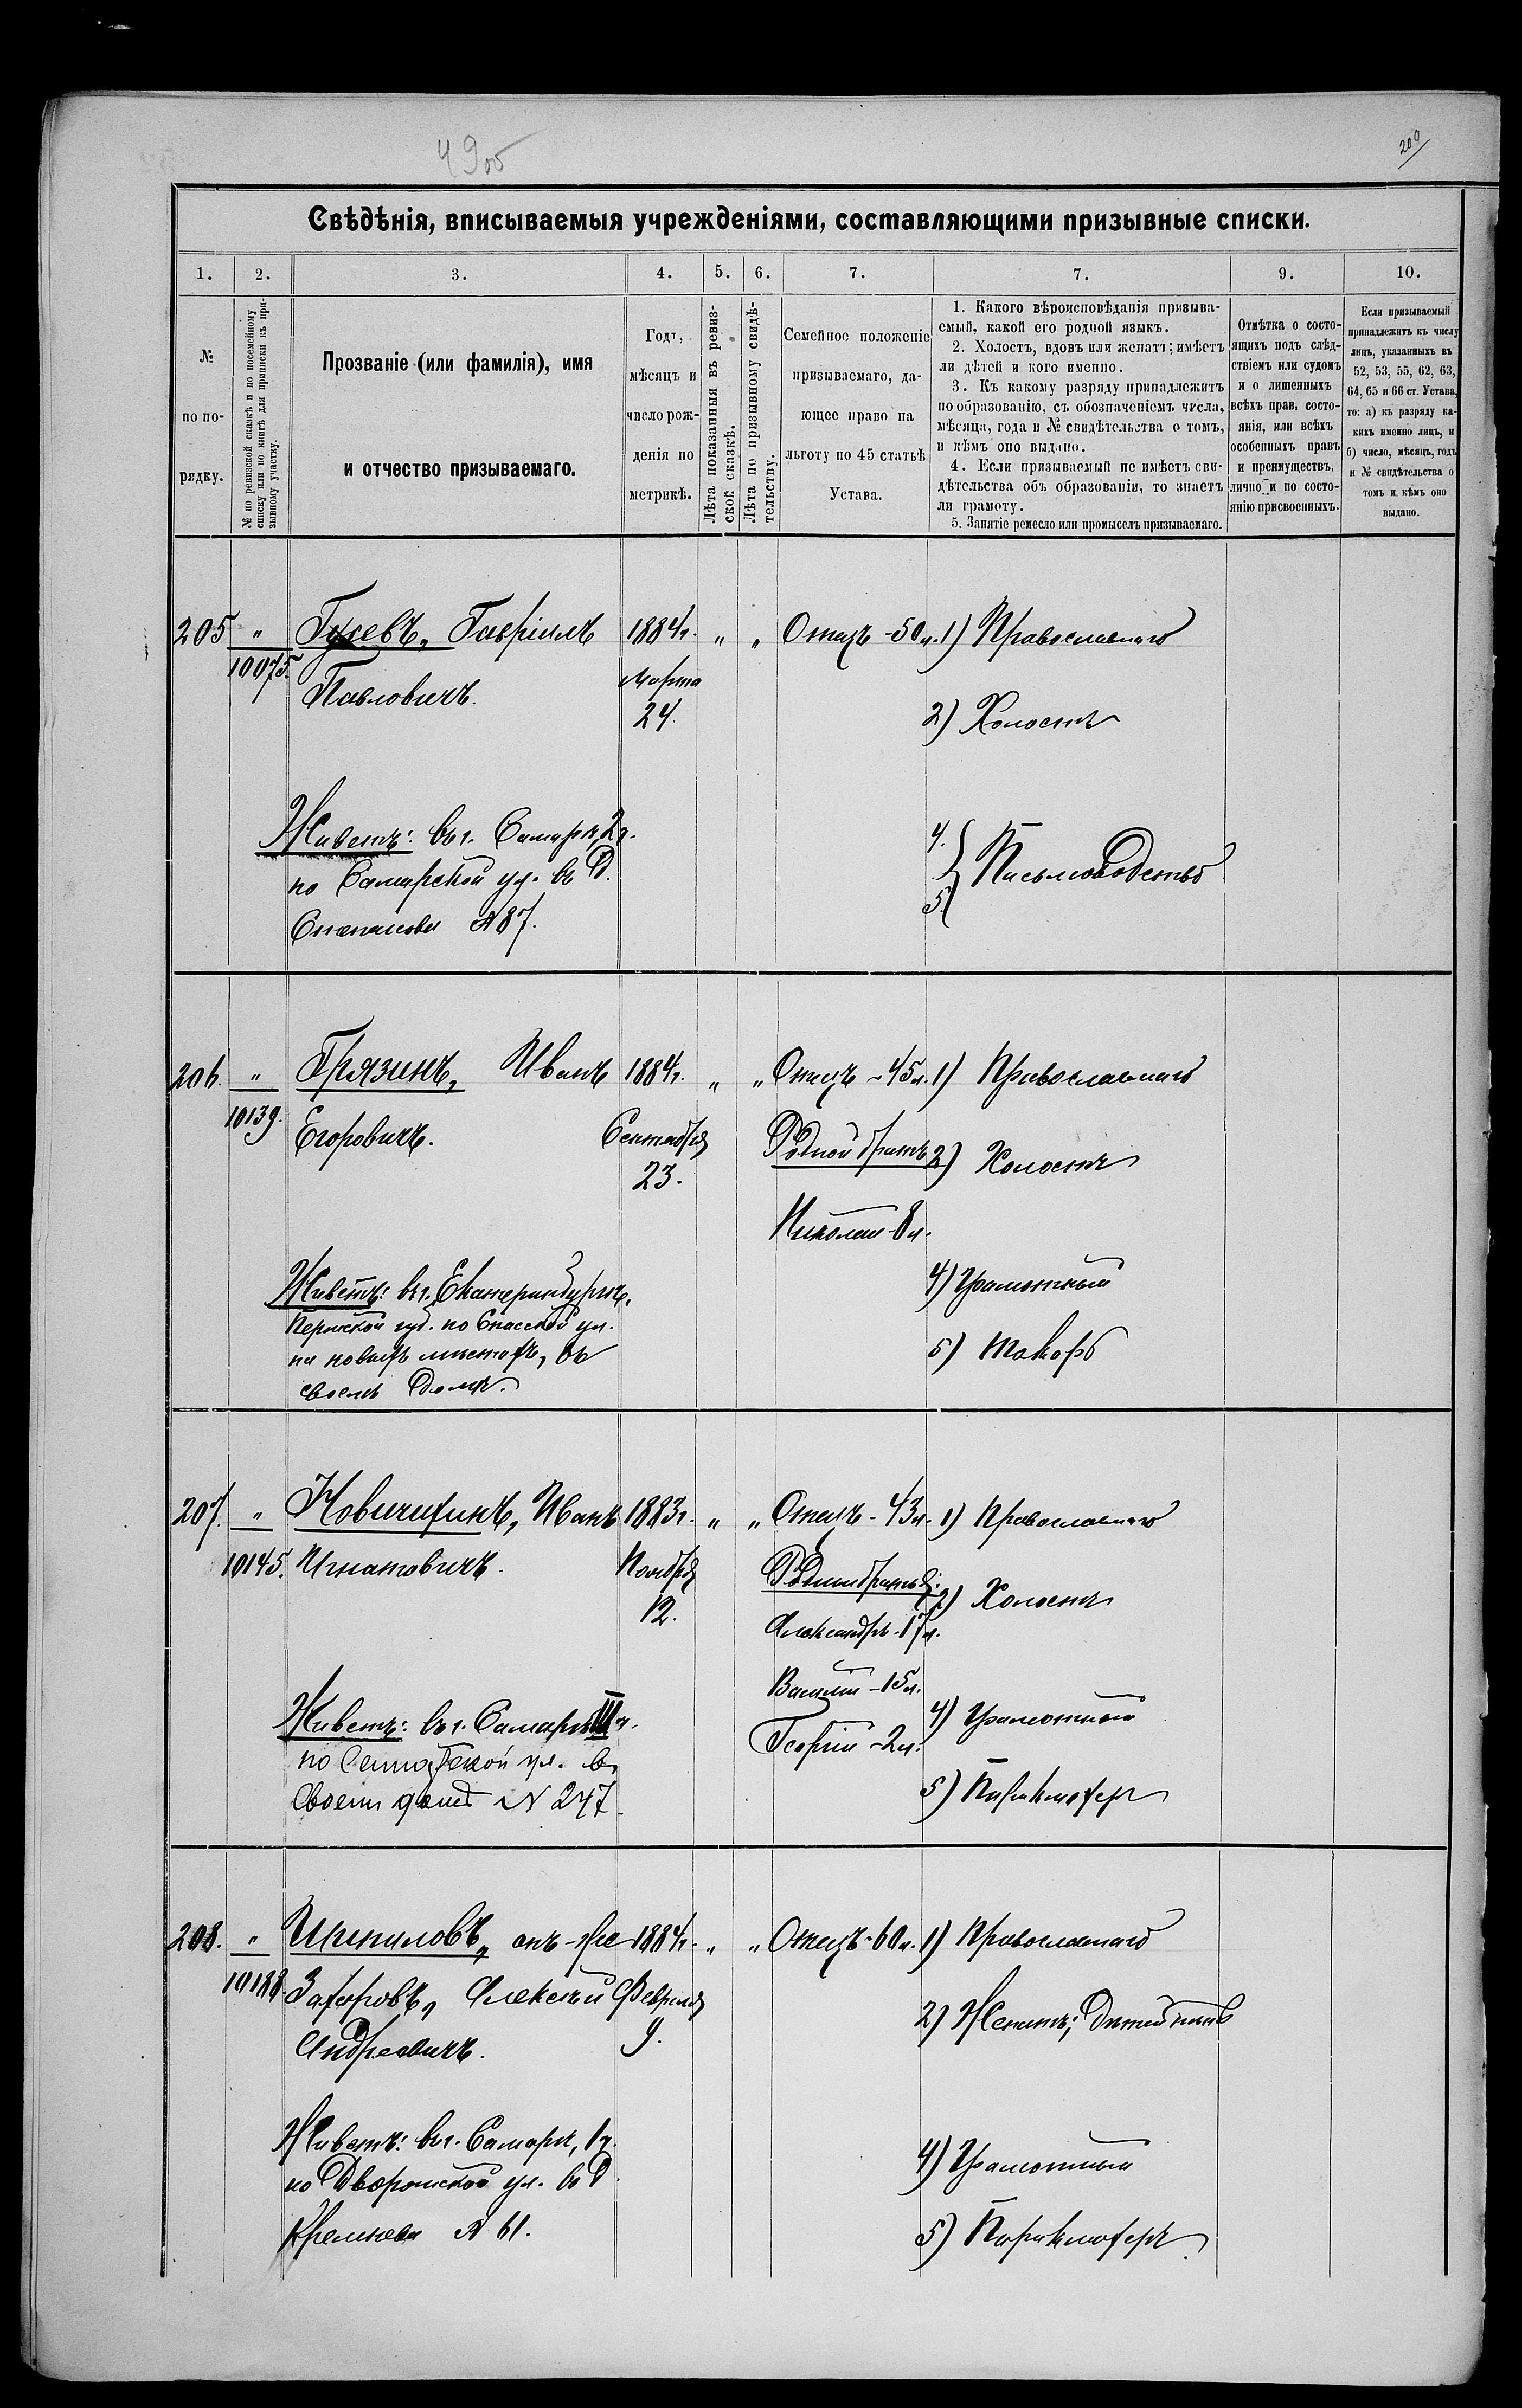 4900
209
Свѣдѣнія, вписываемыя учрежденіями, составляющими призывные списки.
1. 2. 3. 4. 5. 6. 7. 7. 9. 10.
№
по по-
рядку.
№ по ревизской сказкѣ и по посемейному
списку или по книгѣ для приписки къ при-
зывному участку.
Прозваніе (или фамилія), имя
и отчество призываемаго.
Годъ,
мѣсяцъ и
число рож-
денія по
метрикѣ.
Лѣта показанныя въ ревиз-
ской сказкѣ.
Лѣта по призывному свидѣ-
тельству.
Семейное положеніе
призываемаго, да-
ющее право на
льготу по 45 статьѣ
Устава.
1. Какого вѣроисповѣданія призыва-
емый, какой его родной языкъ.
2. Холостъ, вдовъ или женатъ; имѣетъ
ли дѣтей и кого именно.
3. Къ какому разряду принадлежитъ
по образованію, съ обозначеніемъ числа,
мѣсяца, года и № свидѣтельства о томъ,
и кѣмъ оно выдано.
4. Если призываемый не имѣетъ сви-
дѣтельства объ образованіи, то знаетъ
ли грамоту.
5. Занятіе ремесло или промыселъ призываемаго.
Отмѣтка о состо-
ящихъ подъ слѣд-
ствіемъ или судомъ
и о лишенныхъ
всѣхъ прав, состо-
янія, или всѣхъ
особенныхъ правъ
и преимуществъ,
лично и по состо-
янію присвоенныхъ.
Если призываемый
принадлежитъ къ числу
лицъ, указанныхъ въ
52, 53, 55, 62, 63,
64, 65 и 66 ст. Устава,
то: а) къ разряду ка-
кихъ именно лицъ, и
б) число, мѣсяцъ, годъ
и № свидѣтельства о
томъ и кѣмъ оно
выдано.
205 " Гусевъ, Гавріилъ 1884г. " " Отецъ - 50л. 1) Православнаго
10075. Павловичъ. Марта
24. 2) Холостъ
Живетъ: въ г. Самарѣ, 2ч.
по Самарской ул. въ д.
Степанова № 87.
4.
5. } Письмоводство
206. " Грязинъ, Иванъ 1884г. " " Отецъ - 45л. 1) Православнаго
10139. Егоровичъ. Сентября Родной братъ 2) Холостъ
23.
Николай - 8л.
Живетъ: въ г. Екатеринбургѣ,
Пермской губ. по Спасской ул.
на новыхъ мѣстахъ, въ
своемъ домѣ.
4) Грамотный
5) Токарь
207. " Новичихинъ, Иванъ 1883г. " " Отецъ - 43л. 1) Православнаго
10145. Игнатовичъ. Ноября Родные братья: 2) Холостъ
12. Александръ - 17л.
Василій - 15л.
Георгій - 2л.
Живетъ: въ г. Самарѣ III ч.
по ул. въ
Своемъ домѣ № 247
4) Грамотный
5) Парикмахеръ
208. " онъ-же 1884г. " " Отецъ - 60л. 1) Православнаго
10188. Захаровъ, Алексѣй Февраля
Андреевичъ. 9. 2) Женатъ; дѣтей нѣтъ
Живетъ: въ г. Самарѣ, 1ч.
по Дворянской ул. въ д.
Кремнева № 61.
4) Грамотный
5) Парикмахеръ